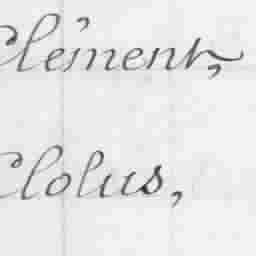 Clément,
Clolus,